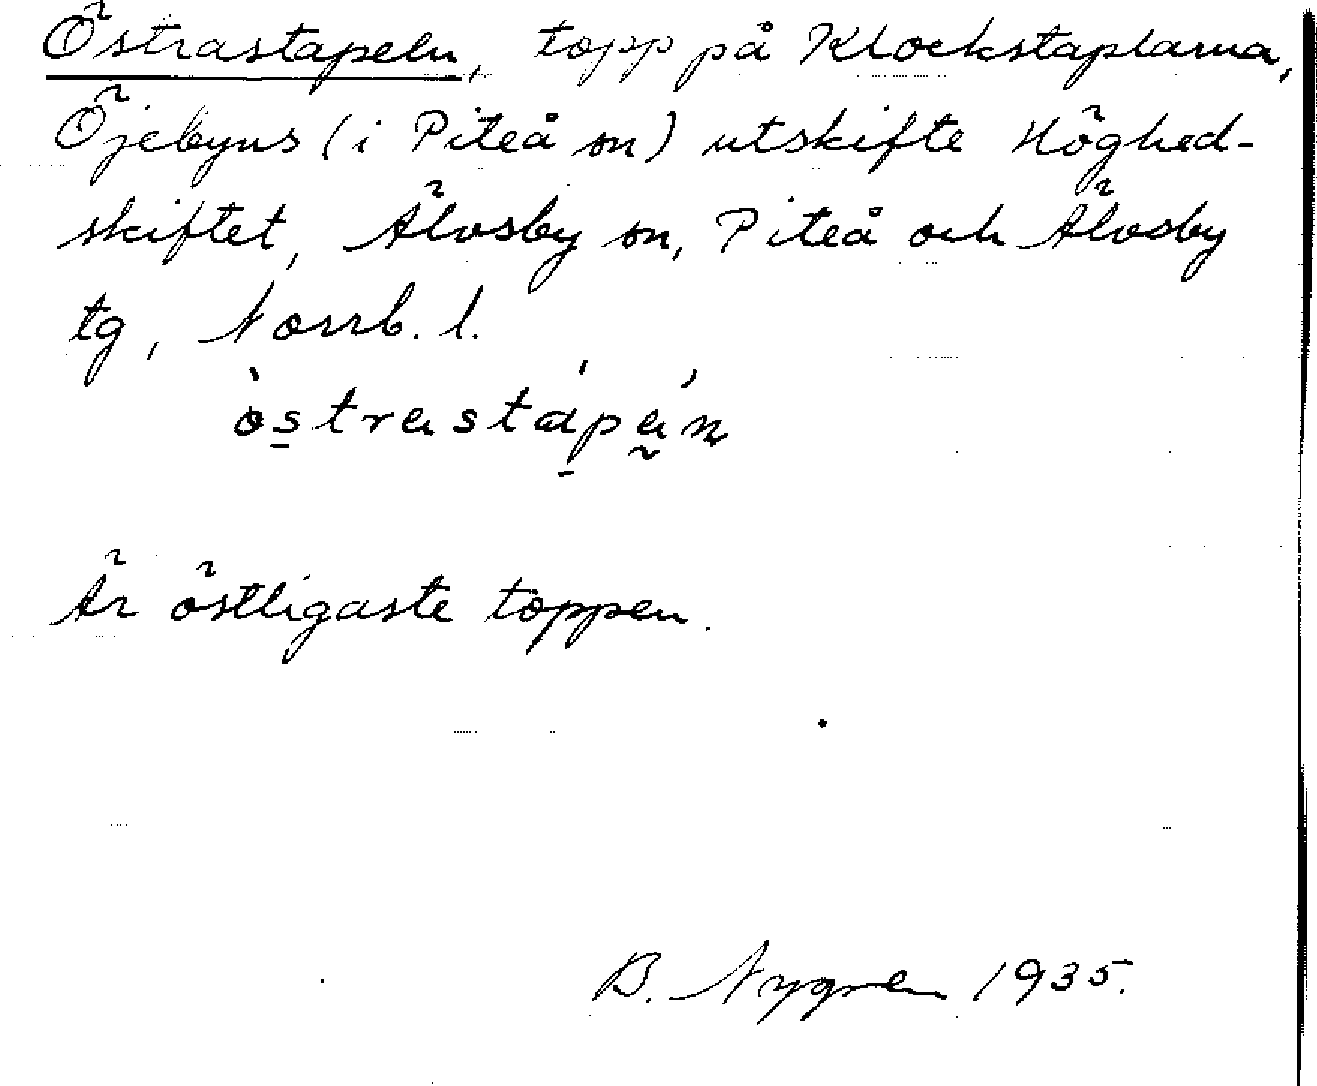 Östrastapeln, topp på Klockstaplarna,
Öjebyns (i Piteå sn) utskifte Höghed-
skiftet, Älvsby sn, Piteå och Älvsby
tg, Norrb. l.
Är östligaste toppen.
B. Nygren 1935.